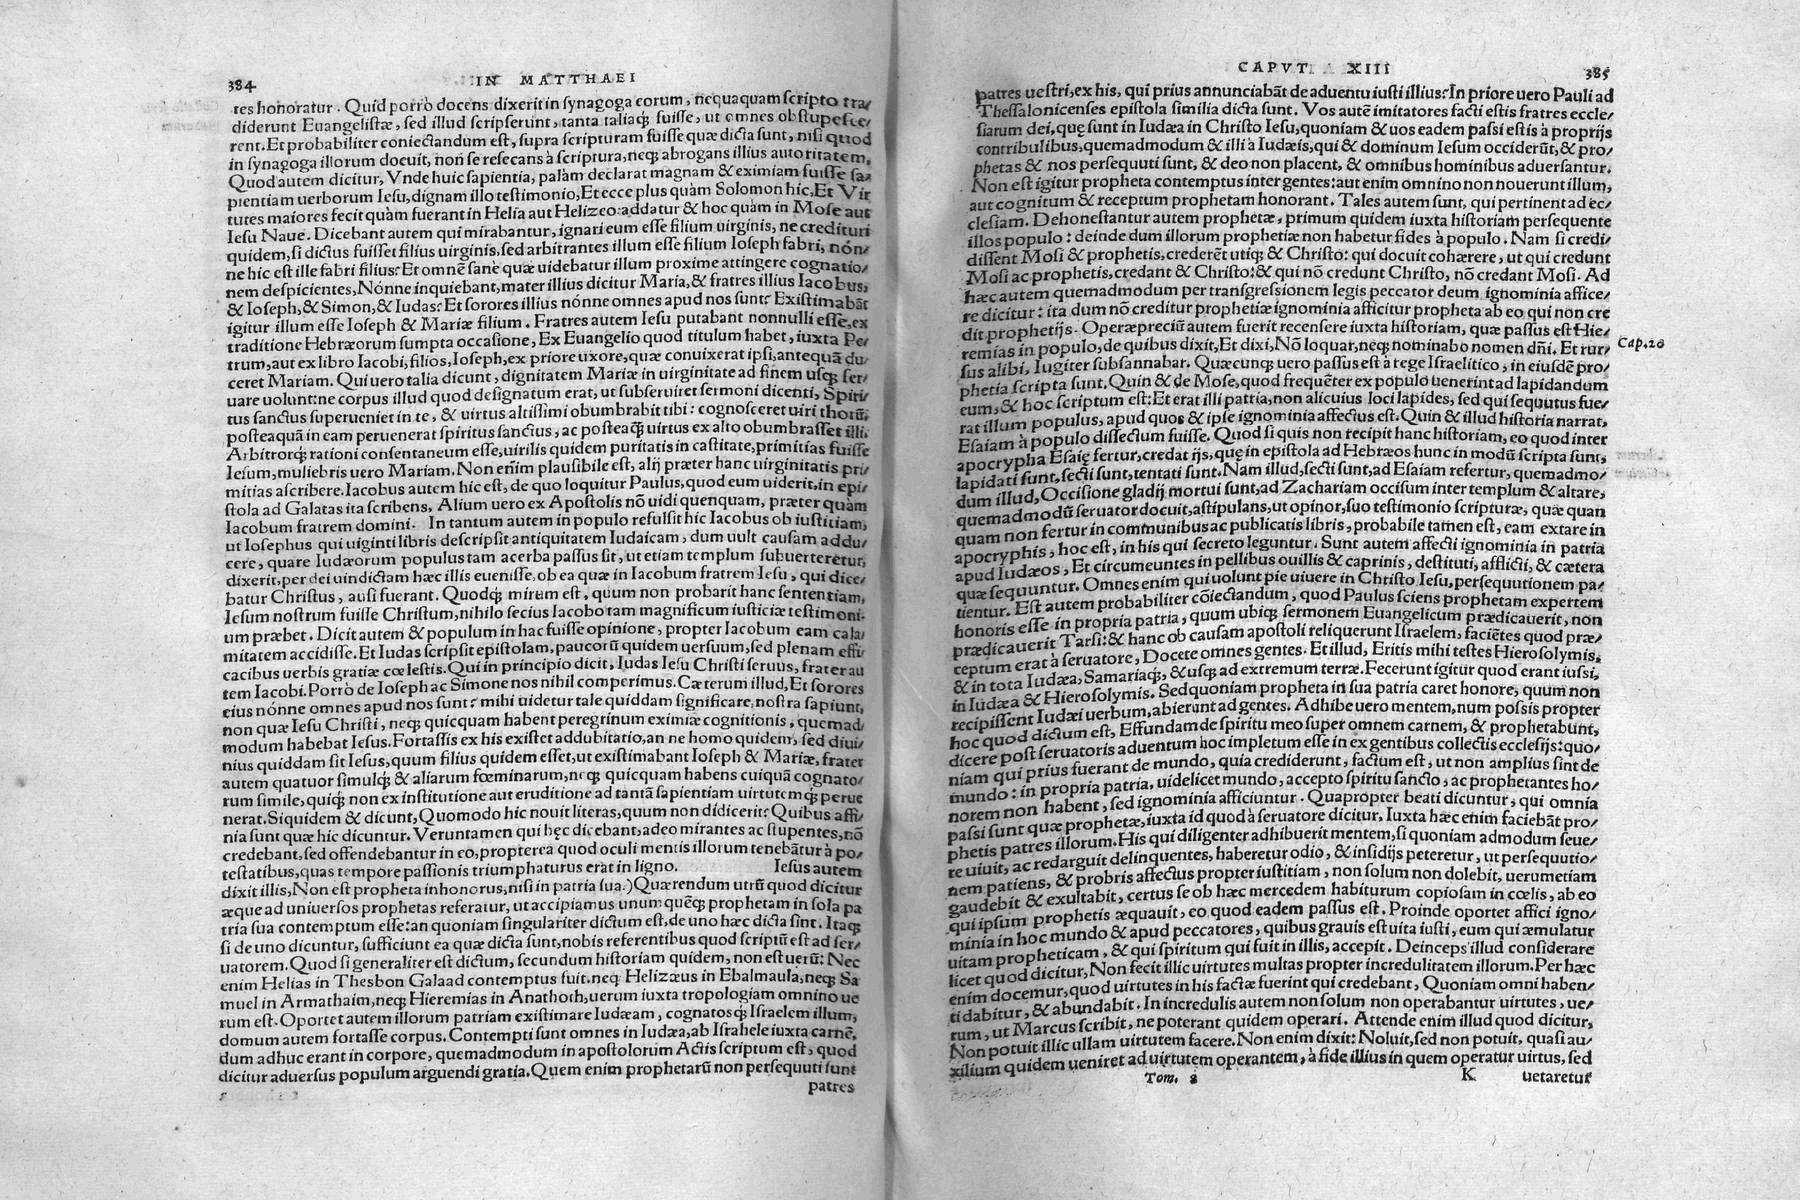 384 IN MATTHAEI
res honoratur. Quid porrò docens dixerit in ſynagoga eorum, nequaquam ſcripto tra/
diderunt Euangeliſtæ, ſed illud ſcripſerunt, tanta taliaq; fuiſſe, ut omnes obſtupeſce/
rent. Et probabiliter coniectandum eſt, ſupra ſcripturam fuiſſe quæ dicta ſunt, niſi quod
in ſynagoga illorum docuit, non ſe reſecans à ſcriptura, neq; abrogans illius autoritatem,
Quod autem dicitur, Vnde huic ſapientia, palàm declarat magnam & eximiam fuiſſe ſa/
pientiam uerborum Ieſu, dignam illo teſtimonio, Et ecce plus quàm Solomon hic, Et Vir
tutes maiores fecit quàm fuerant in Helia aut Helizeo: addatur & hoc quàm in Moſe aut
Ieſu Naue. Dicebant autem qui mirabantur, ignari eum eſſe filium uirginis, ne credituri
quidem, ſi dictus fuiſſet filius uirginis, ſed arbitrantes illum eſſe filium Ioſeph fabri, nón/
ne hic eſt ille fabri filius? Et omnē ſanè quæ uidebatur illum proxime attingere cognatio/
nem deſpicientes, Nónne inquiebant, mater illius dicitur Maria, & fratres illius Iacobus,
& Ioſeph, & Simon, & Iudas? Et ſorores illius nónne omnes apud nos ſunt? Exiſtimabāt
igitur illum eſſe Ioſeph & Mariæ filium. Fratres autem Ieſu putabant nonnulli eſſe, ex
traditione Hebræorum ſumpta occaſione, Ex Euangelio quod titulum habet, iuxta Pe/
trum, aut ex libro Iacobi, filios, Ioſeph, ex priore uxore, quæ conuixerat ipſi, antequā du/
ceret Mariam. Qui uero talia dicunt, dignitatem Mariæ in uirginitate ad finem uſq; ſer/
uare uolunt: ne corpus illud quod deſignatum erat, ut ſubſeruiret ſermoni dicenti, Spiri/
tus ſanctus ſuperueniet in te, & uirtus altiſſimi obumbrabit tibi: cognoſceret uiri thorū,
poſteaquā in eam peruenerat ſpiritus ſanctus, ac poſteaq̄ uirtus ex alto obumbraſſet illi.
Arbitrorq; rationi conſentaneum eſſe, uirilis quidem puritatis in caſtitate, primitias fuiſſe
Ieſum, muliebris uero Mariam. Non enim plauſibile eſt, alij præter hanc uirginitatis pri/
mitias aſcribere. Iacobus autem hic eſt, de quo loquitur Paulus, quod eum uiderit, in epi/
ſtola ad Galatas ita ſcribens, Alium uero ex Apoſtolis nō uidi quenquam, præter quàm
Iacobum fratrem domini. In tantum autem in populo refulſit hic Iacobus ob iuſtitiam,
ut Ioſephus qui uiginti libris deſcripſit antiquitatem Iudaicam, dum uult cauſam addu/
cere, quare Iudæorum populus tam acerba paſſus ſit, ut etiam templum ſubuerteretur,
dixerit, per dei uindictam hæc illis eueniſſe, ob ea quæ in Iacobum fratrem Ieſu, qui dice/
batur Chriſtus, auſi fuerant. Quodq; mirum eſt, quum non probarit hanc ſententiam,
Ieſum noſtrum fuiſſe Chriſtum, nihilo ſecius Iacobo tam magnificum iuſticiæ teſtimoni-
um præbet. Dicit autem & populum in hac fuiſſe opinione, propter Iacobum eam cala/
mitatem accidiſſe. Et Iudas ſcripſit epiſtolam, paucorū quidem uerſuum, ſed plenam effi/
cacibus uerbis gratiæ cœleſtis. Qui in principio dicit, Iudas Ieſu Chriſti ſeruus, frater au
tem Iacobi. Porrò de Ioſeph ac Simone nos nihil comperimus. Cæterum illud, Et ſorores
eius nónne omnes apud nos ſunt? mihi uidetur tale quiddam ſignificare, noſtra ſapiunt,
non quæ Ieſu Chriſti, neq; quicquam habent peregrinum eximiæ cognitionis, quemad/
modum habebat Ieſus. Fortaſſis ex his exiſtet addubitatio, an ne homo quidem, ſed diui/
nius quiddam ſit Ieſus, quum filius quidem eſſet, ut exiſtimabant Ioſeph & Mariæ, frater
autem quatuor ſimulq; & aliarum fœminarum, neq; quicquam habens cuiquā cognato/
rum ſimile, quiq; non ex inſtitutione aut eruditione ad tantā ſapientiam uirtutemq; perue
nerat. Siquidem & dicunt, Quomodo hic nouit literas, quum non didicerit? Quibus affi/
nia ſunt quæ hic dicuntur. Veruntamen qui hęc dicebant, adeo mirantes ac ſtupentes, nō
credebant, ſed offendebantur in eo, propterea quod oculi mentis illorum tenebātur à po/
teſtatibus, quas tempore paſſionis triumphaturus erat in ligno. Ieſus autem
dixit illis, Non eſt propheta inhonorus, niſi in patria ſua.) Quærendum utrū quod dicitur
æque ad uniuerſos prophetas referatur, ut accipiamus unum quēq; prophetam in ſola pa
tria ſua contemptum eſſe: an quoniam ſingulariter dictum eſt, de uno hæc dicta ſint. Itaq;
ſi de uno dicuntur, ſufficiunt ea quæ dicta ſunt, nobis referentibus quod ſcriptū eſt ad ſer/
uatorem. Quod ſi generaliter eſt dictum, ſecundum hiſtoriam quidem, non eſt uerū: Nec
enim Helias in Thesbon Galaad contemptus fuit. neq; Helizæus in Ebalmaula, neq; Sa
muel in Armathaim, neq; Hieremias in Anathoth, uerum iuxta tropologiam omnino ue
rum eſt. Oportet autem illorum patriam exiſtimare Iudæam, cognatosq; Iſraelem illum,
domum autem fortaſſe corpus. Contempti ſunt omnes in Iudæa, ab Iſrahele iuxta carnē,
dum adhuc erant in corpore, quemadmodum in apoſtolorum Actis ſcriptum eſt, quod
dicitur aduerſus populum arguendi gratia. Quem enim prophetarū non perſequuti ſunt
patres
CAPVT XIII 385
patres ueſtri, ex his, qui prius annunciabāt de aduentu iuſti illius? In priore uero Pauli ad
Theſſalonicenſes epiſtola ſimilia dicta ſunt. Vos autē imitatores facti eſtis fratres eccle/
ſiarum dei, quę ſunt in Iudæa in Chriſto Ieſu, quoniam & uos eadem paſſi eſtis à proprijs
contribulibus, quemadmodum & illi à Iudæis, qui & dominum Ieſum occiderūt, & pro/
phetas & nos perſequuti ſunt, & deo non placent, & omnibus hominibus aduerſantur.
Non eſt igitur propheta contemptus inter gentes: aut enim omnino non nouerunt illum,
aut cognitum & receptum prophetam honorant. Tales autem ſunt, qui pertinent ad ec/
cleſiam. Dehoneſtantur autem prophetæ, primum quidem iuxta hiſtoriam perſequente
illos populo: deinde dum illorum prophetiæ non habetur fides à populo. Nam ſi credi/
diſſent Moſi & prophetis, crederēt utiq; & Chriſto: qui docuit cohærere, ut qui credunt
Moſi ac prophetis, credant & Chriſto: & qui nō credunt Chriſto, nō credant Moſi. Ad
hæc autem quemadmodum per tranſgreſſionem legis peccator deum ignominia affice/
re dicitur: ita dum nō creditur prophetiæ ignominia afficitur propheta ab eo qui non cre
dit prophetijs. Operæpreciū autem fuerit recenſere iuxta hiſtoriam, quæ paſſus eſt Hie/
remias in populo, de quibus dixit, Et dixi, Nō loquar, neq; nominabo nomen dñi. Et rur/ Cap. 20
ſus alibi, Iugiter ſubſannabar. Quæcunq; uero paſſus eſt à rege Iſraelitico, in eiuſdē pro/
phetia ſcripta ſunt. Quin & de Moſe, quod frequēter ex populo uenerint ad lapidandum
eum, & hoc ſcriptum eſt: Et erat illi patria, non alicuius loci lapides, ſed qui ſequutus fue/
rat illum populus, apud quos & ipſe ignominia affectus eſt. Quin & illud hiſtoria narrat,
Eſaiam à populo diſſectum fuiſſe. Quod ſi quis non recipit hanc hiſtoriam, eo quod inter
apocrypha Eſaię fertur, credat ijs, quę in epiſtola ad Hebræos hunc in modū ſcripta ſunt,
lapidati ſunt, ſecti ſunt, tentati ſunt. Nam illud, ſecti ſunt, ad Eſaiam refertur, quemadmo/
dum illud, Occiſione gladij mortui ſunt, ad Zachariam occiſum inter templum & altare,
quemadmodū ſeruator docuit, aſtipulans, ut opinor, ſuo teſtimonio ſcripturæ, quæ quan
quam non fertur in communibus ac publicatis libris, probabile tamen eſt, eam extare in
apocryphis, hoc eſt, in his qui ſecreto leguntur. Sunt autem affecti ignominia in patria
apud Iudæos, Et circumeuntes in pellibus ouillis & caprinis, deſtituti, afflicti, & cætera
quæ ſequuntur. Omnes enim qui uolunt pie uiuere in Chriſto Ieſu, perſequutionem pa/
tientur. Eſt autem probabiliter cōiectandum, quod Paulus ſciens prophetam expertem
honoris eſſe in propria patria, quum ubiq; ſermonem Euangelicum prædicauerit, non
prædicauerit Tarſi: & hanc ob cauſam apoſtoli reliquerunt Iſraelem, faciētes quod præ/
ceptum erat à ſeruatore, Docete omnes gentes. Et illud, Eritis mihi teſtes Hieroſolymis,
& in tota Iudæa, Samariaq;, & uſq; ad extremum terræ. Fecerunt igitur quod erant iuſſi,
in Iudæa & Hieroſolymis. Sed quoniam propheta in ſua patria caret honore, quum non
recipiſſent Iudæi uerbum, abierunt ad gentes. Adhibe uero mentem, num poſsis propter
hoc quod dictum eſt, Effundam de ſpiritu meo ſuper omnem carnem, & prophetabunt,
dicere poſt ſeruatoris aduentum hoc impletum eſſe in ex gentibus collectis eccleſijs: quo/
niam qui prius fuerant de mundo, quia crediderunt, factum eſt, ut non amplius ſint de
mundo: in propria patria, uidelicet mundo, accepto ſpiritu ſancto, ac prophetantes ho/
norem non habent, ſed ignominia afficiuntur. Quapropter beati dicuntur, qui omnia
paſſi ſunt quæ prophetæ, iuxta id quod à ſeruatore dicitur, Iuxta hæc enim faciebāt pro/
phetis patres illorum. His qui diligenter adhibuerit mentem, ſi quoniam admodum ſeue/
re uiuit, ac redarguit delinquentes, haberetur odio, & inſidijs peteretur, ut perſequutio/
nem patiens, & probris affectus propter iuſtitiam, non ſolum non dolebit, uerumetiam
gaudebit & exultabit, certus ſe ob hæc mercedem habiturum copioſam in cœlis, ab eo
qui ipſum prophetis æquauit, eo quod eadem paſſus eſt. Proinde oportet affici igno/
minia in hoc mundo & apud peccatores, quibus grauis eſt uita iuſti, eum qui æmulatur
uitam propheticam, & qui ſpiritum qui fuit in illis, accepit. Deinceps illud conſiderare
licet quod dicitur, Non fecit illic uirtutes multas propter incredulitatem illorum. Per hæc
enim docemur, quod uirtutes in his factæ fuerint qui credebant, Quoniam omni haben/
ti dabitur, & abundabit. In incredulis autem non ſolum non operabantur uirtutes, ue/
rum, ut Marcus ſcribit, ne poterant quidem operari. Attende enim illud quod dicitur,
Non potuit illic ullam uirtutem facere. Non enim dixit: Noluit, ſed non potuit, quaſi au/
xilium quidem ueniret ad uirtutem operantem, à fide illius in quem operatur uirtus, ſed
Tom. 8 K uetaretur